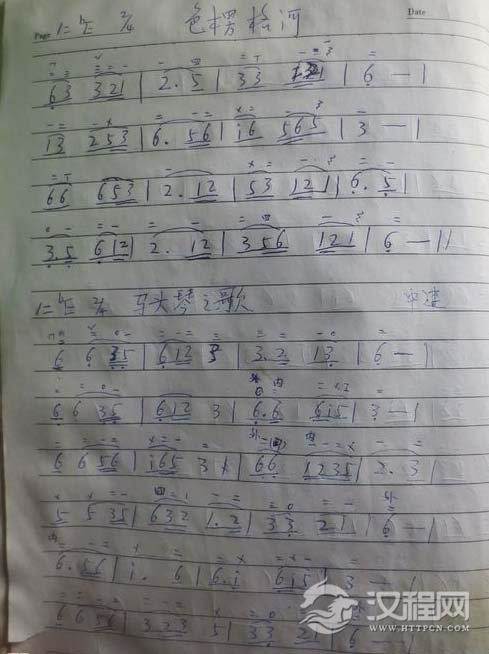 Page 1=ᵇE 2/4 色楞格河 Date
63 321 | 2. 5 | 33 1321 | 6 — |
13 253 | 6. 56 | i6 565 | 3 — |
66 653 | 2. 12 | 53 121 | 6. 5 |
3.5 612 | 2. 12 | 356 121 | 6 — ||
1=ᵇE 2/4 马头琴之歌 中速
6 6 35 | 612 3 | 3.2 13 | 6 — |
6 6 35 | 612 3 | 6.6 615 | 3 — |
6 6 56 | i65 3 | 66 1235 | 2. 3 |
5 5 35 | 632 1.2 | 33 21 | 6 — |
6. 56 | i. 6 | 6.i 615 | 3 — |
6 6 56 | 323 5 | 33 21 | 6 — |
汉程网
WWW.HTTPCN.COM